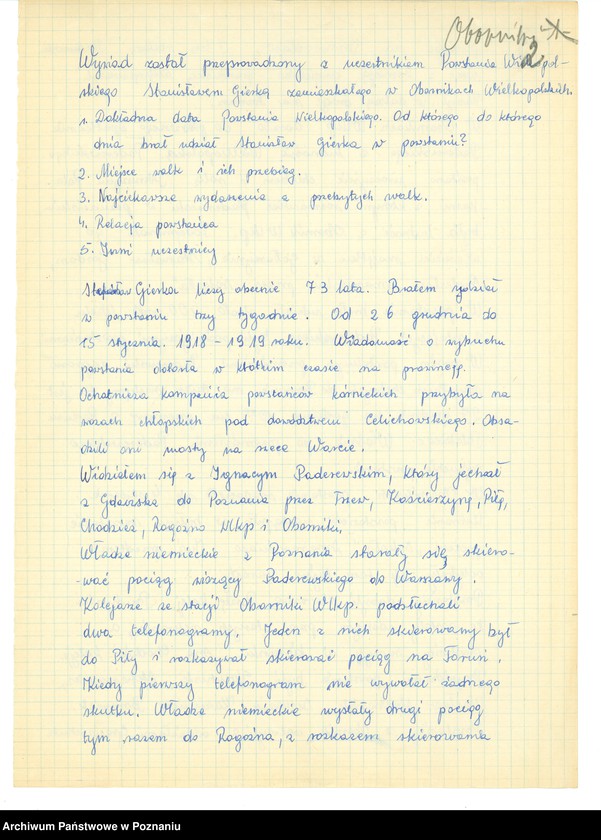 Oborniki
2
Wywiad został przeprowadzony z uczestnikiem Powstania Wielkopol-
skiego Stanisławem Gierką zamieszkałego w Obornikach Wielkopolskich.
1. Dokładna data Powstania Wielkopolskiego. Od którego do którego
dnia brał udział Stanisław Gierka w powstaniu?
2. Miejsce walk i ich przebieg.
3. Najciekawsze wydarzenia z przebytych walk.
4. Relacja powstańca
5. Inni uczestnicy
Stanisław Gierka liczy obecnie 73 lata. Brałem udział
w powstaniu trzy tygodnie. Od 26 grudnia do
15 stycznia. 1918 - 1919 roku. Wiadomość o wybuchu
powstania dotarła w krótkim czasie na prowincję.
Ochotnicza kompania powstańców kórnickich przybyła na
wozach chłopskich pod dowództwem Celichowskiego. Obsa-
dzili oni mosty na rzece Warcie.
Widziałem się z Ignacym Paderewskim, który jechał
z Gdańska do Poznania przez Tczew, Kościerzynę, Piłę,
Chodzież, Rogoźno Wlkp i Oborniki.
Władze niemieckie z Poznania starały się skiero-
-wać pociąg wiozący Paderewskiego do Warszawy.
Kolejarze ze stacji Oborniki Wlkp. podsłuchali
dwa telefonogramy. Jeden z nich skierowany był
do Piły i rozkazywał skierować pociąg na Toruń.
Kiedy pierwszy telefonogram nie wywołał żadnego
skutku. Władze niemieckie wysłały drugi pociąg
tym razem do Rogoźna, z rozkazem skierowania
Archiwum Państwowe w Poznaniu